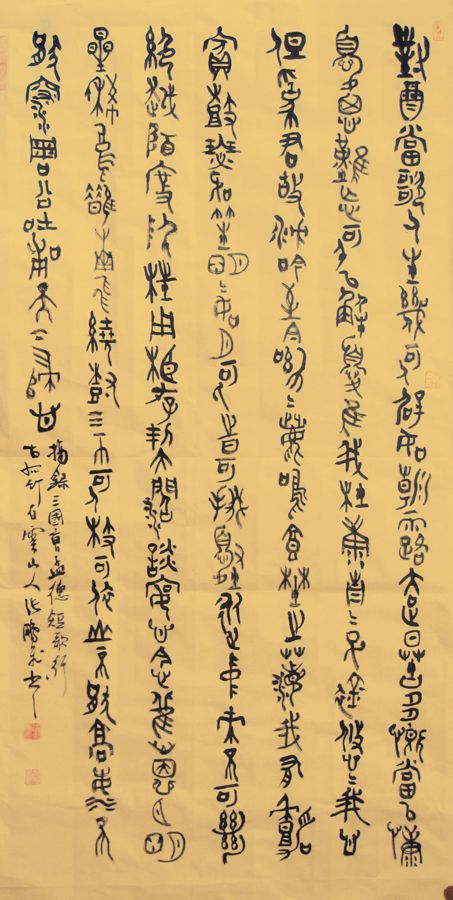 對酉當歌人生幾何辟如朝露去日苦多慨當以慷
憂思難忘何以解憂隹我杜康青=子衿悠=我心
但爲君故沈吟至今呦=鹿鳴食埜之苹我有嘉
賓鼓瑟吹笙明=如月何時可掇憂從中來不可斷
絕越陌度阡枉用相存契闊談讌心念舊恩月明
星稀烏鵲南飛繞樹三匝何枝可依山不厭高海不
厭深周公吐哺天下歸心
摘錄三國曹孟德短歌行
白雲山人張書